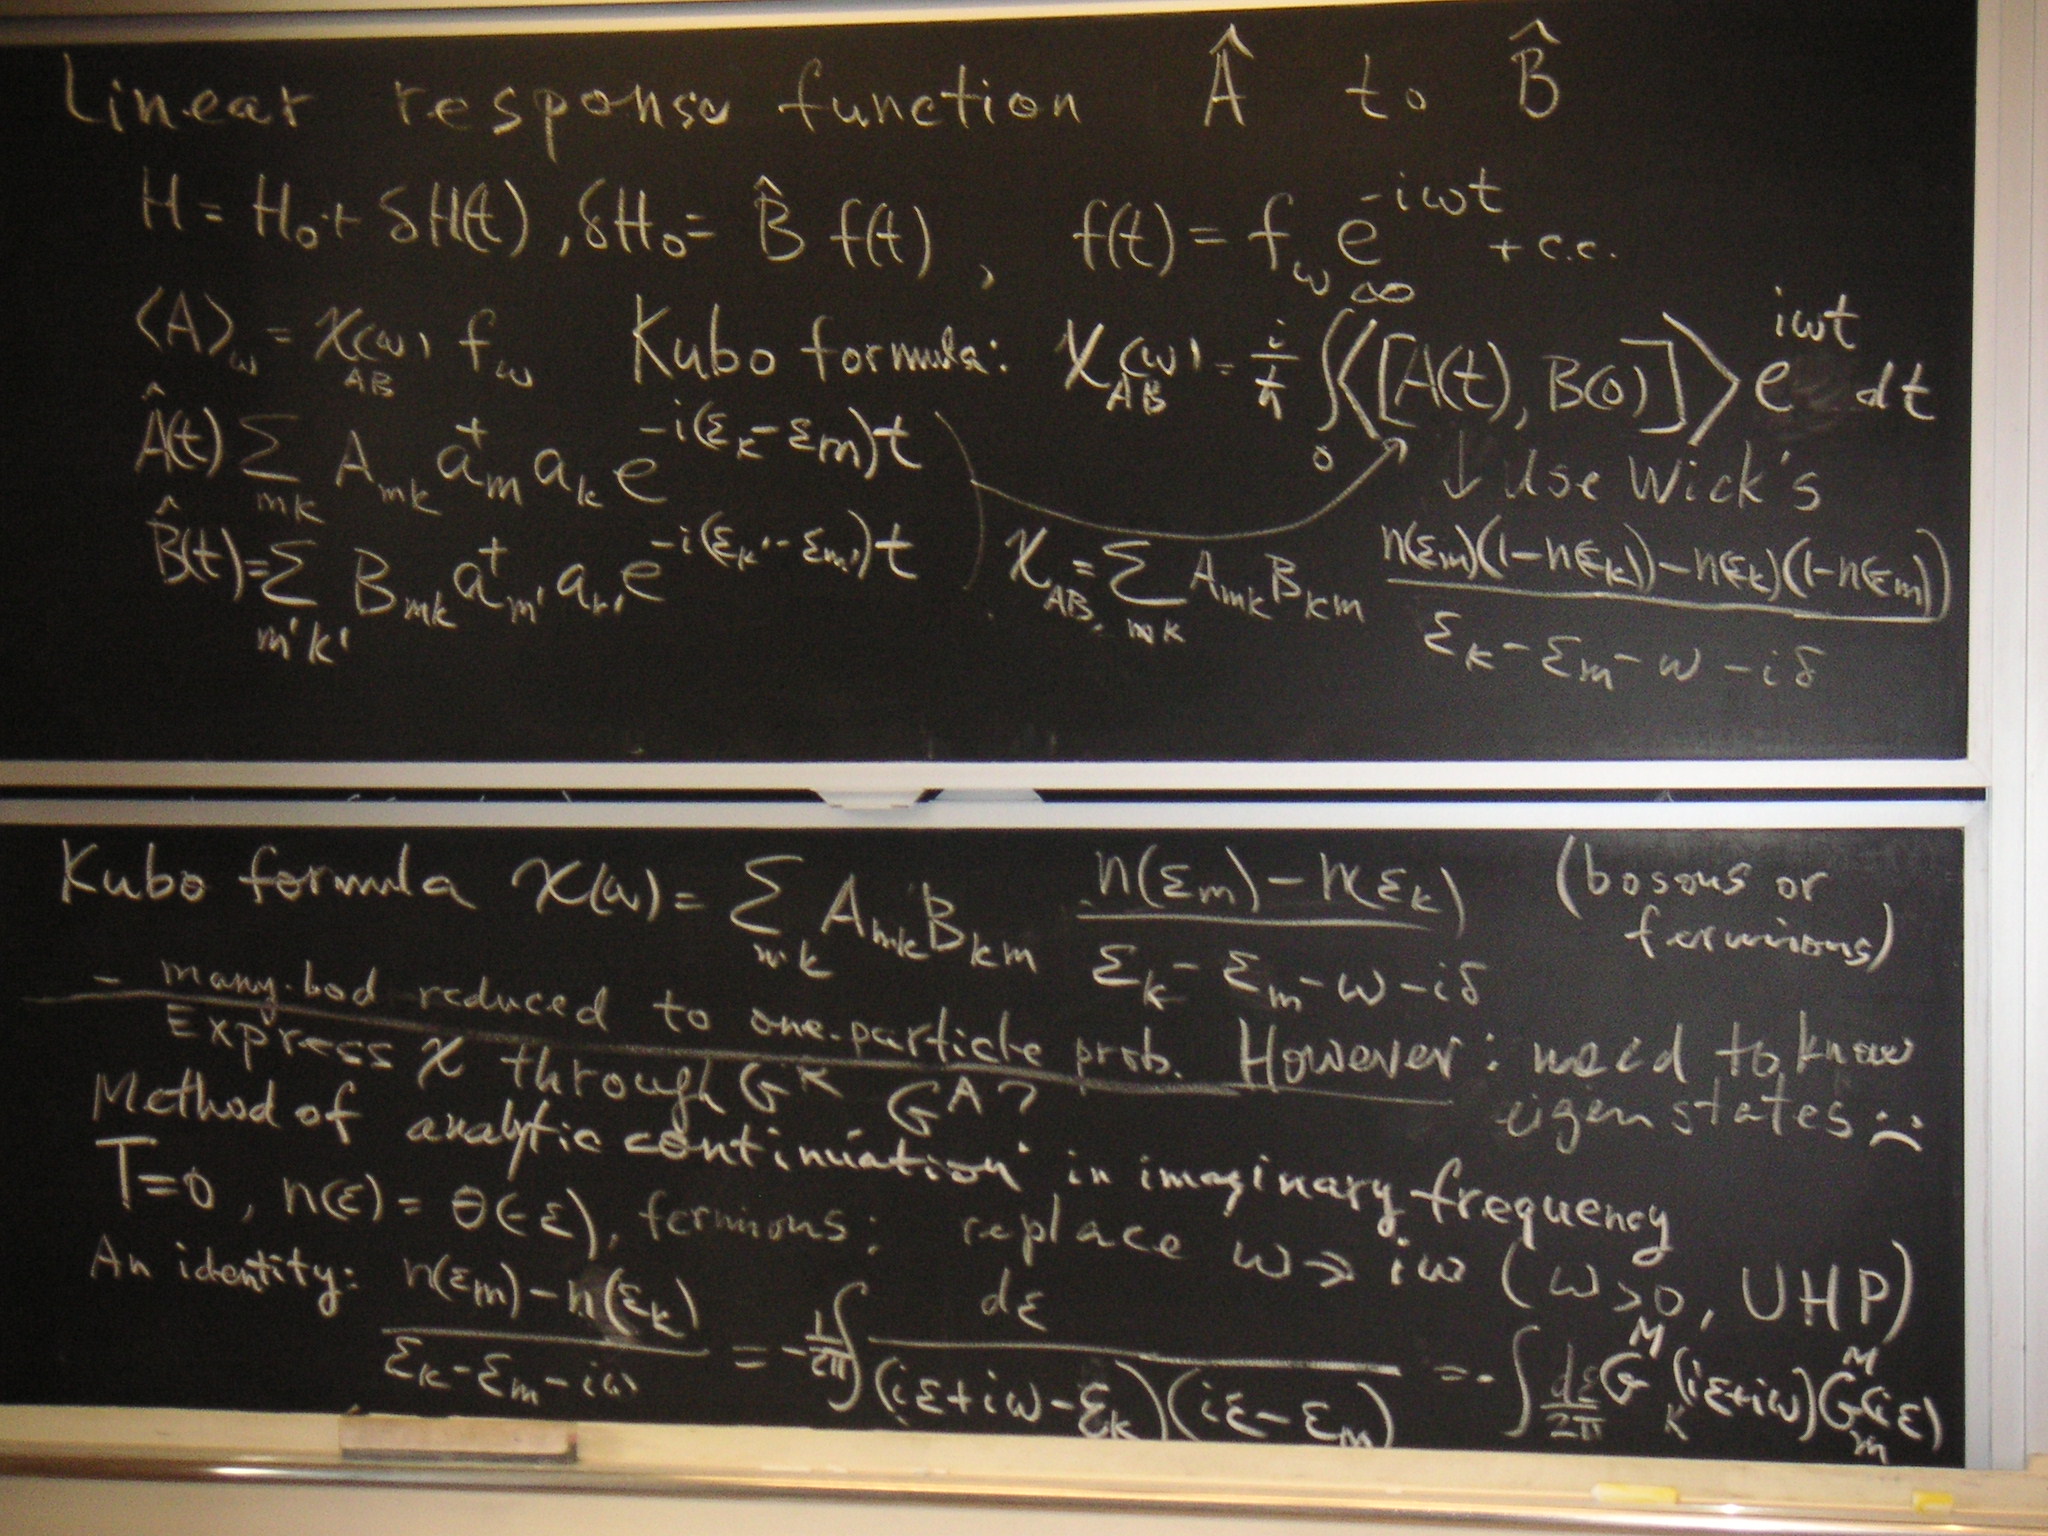 Linear response function Â to B̂
H = H₀ + δH(t), δH₀ = B̂ f(t), f(t) = f_ω e^{-iωt} + c.c.
⟨A⟩_ω = χ_{AB}(ω) f_ω Kubo formula: χ_{AB}(ω) = i/ħ ∫_0^∞ ⟨[A(t), B(0)]⟩ e^{iωt} dt
Â(t) Σ_{mk} A_{mk} a⁺_m a_k e^{-i(ε_k - ε_m)t} ↓ Use Wick's
B̂(t) = Σ_{m'k'} B_{mk} a⁺_{m'} a_{k'} e^{-i(ε_{k'} - ε_{m'})t} χ_{AB} = Σ_{mk} A_{mk} B_{km} (n(ε_m)(1-n(ε_k)) - n(ε_k)(1-n(ε_m))) / (ε_k - ε_m - ω - iδ)
Kubo formula χ(ω) = Σ_{mk} A_{mk} B_{km} (n(ε_m) - n(ε_k)) / (ε_k - ε_m - ω - iδ) (bosons or fermions)
- many-bod reduced to one-particle prob. However: need to know eigenstates :(
Express χ through G^R G^A ?
Method of analytic continuation in imaginary frequency
T=0, n(ε) = θ(-ε), fermions: replace ω → iω (ω>0, UHP)
An identity: (n(ε_m) - n(ε_k)) / (ε_k - ε_m - iω) = -1/2π ∫ dε / ((iε+iω-ε_k)(iε-ε_m)) = - ∫ dε/2π G^M_k(iε+iω) G^M_m(iε)